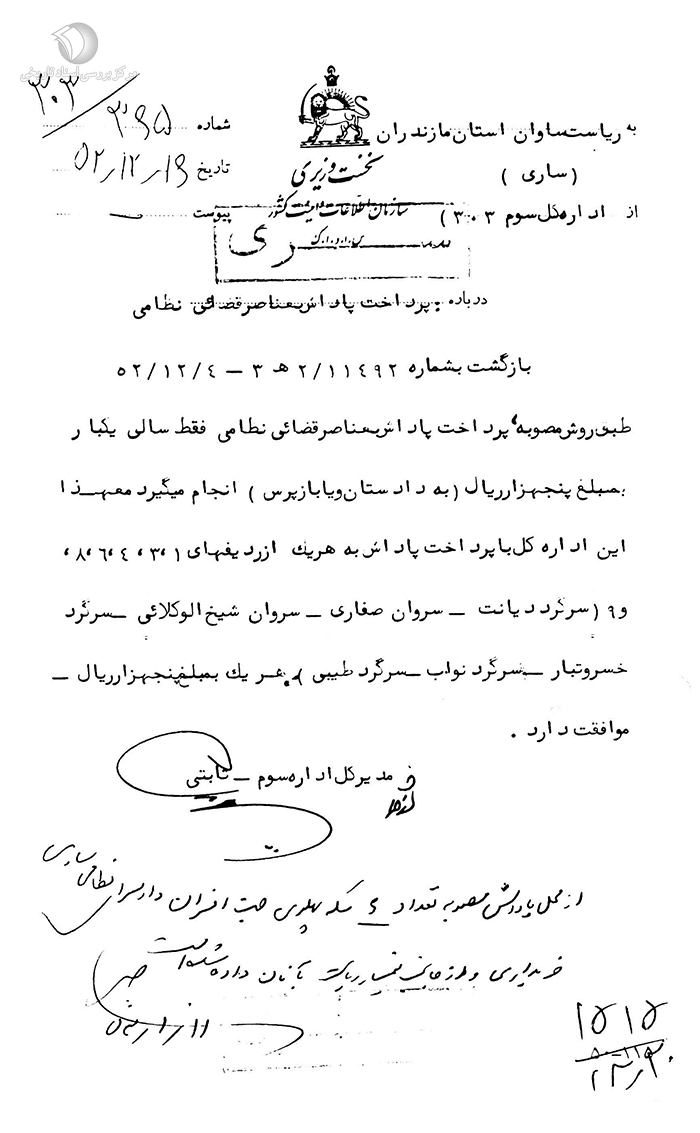 مرکز بررسی اسناد تاریخی
۳۰۳
به ریاست ساواک استان مازندران
شماره ۳۹۵
نخست وزیری
(ساری)
تاریخ ۵۲/۱۲/۱۹
سازمان اطلاعات و امنیت کشور
از اداره کل سوم (۳۰۳)
پیوست
س.ا.و.ا.ک
سری
درباره : پرداخت پاداش بعناصر قضائی نظامی
بازگشت بشماره ۲/۱۱۴۹۲ هـ ۳ – ۵۲/۱۲/۴
طبق روش مصوبه، پرداخت پاداش بعناصر قضائی نظامی فقط سالی یکبار
بمبلغ پنجهزار ریال (به دادستان و یا بازپرس) انجام میگیرد معهذا
این اداره کل با پرداخت پاداش به هریك از ردیفهای ۱، ۳، ۴، ۶، ۸،
و۹ (سرگرد دیانت – سروان صفاری – سروان شیخ الوکلائی – سرگرد
خسروتبار – سرگرد نواب – سرگرد طیبی) هر یك بمبلغ پنجهزار ریال –
موافقت دارد .
مدیرکل اداره سوم – ثابتی
از محل پاداش مصوبه تعداد ۶ سکه پهلوی جهت افسران دادسرای نظامی ساری
خریداری و از طرف تیمسار ریاست بآنان داده شده است
۱۵۱۵